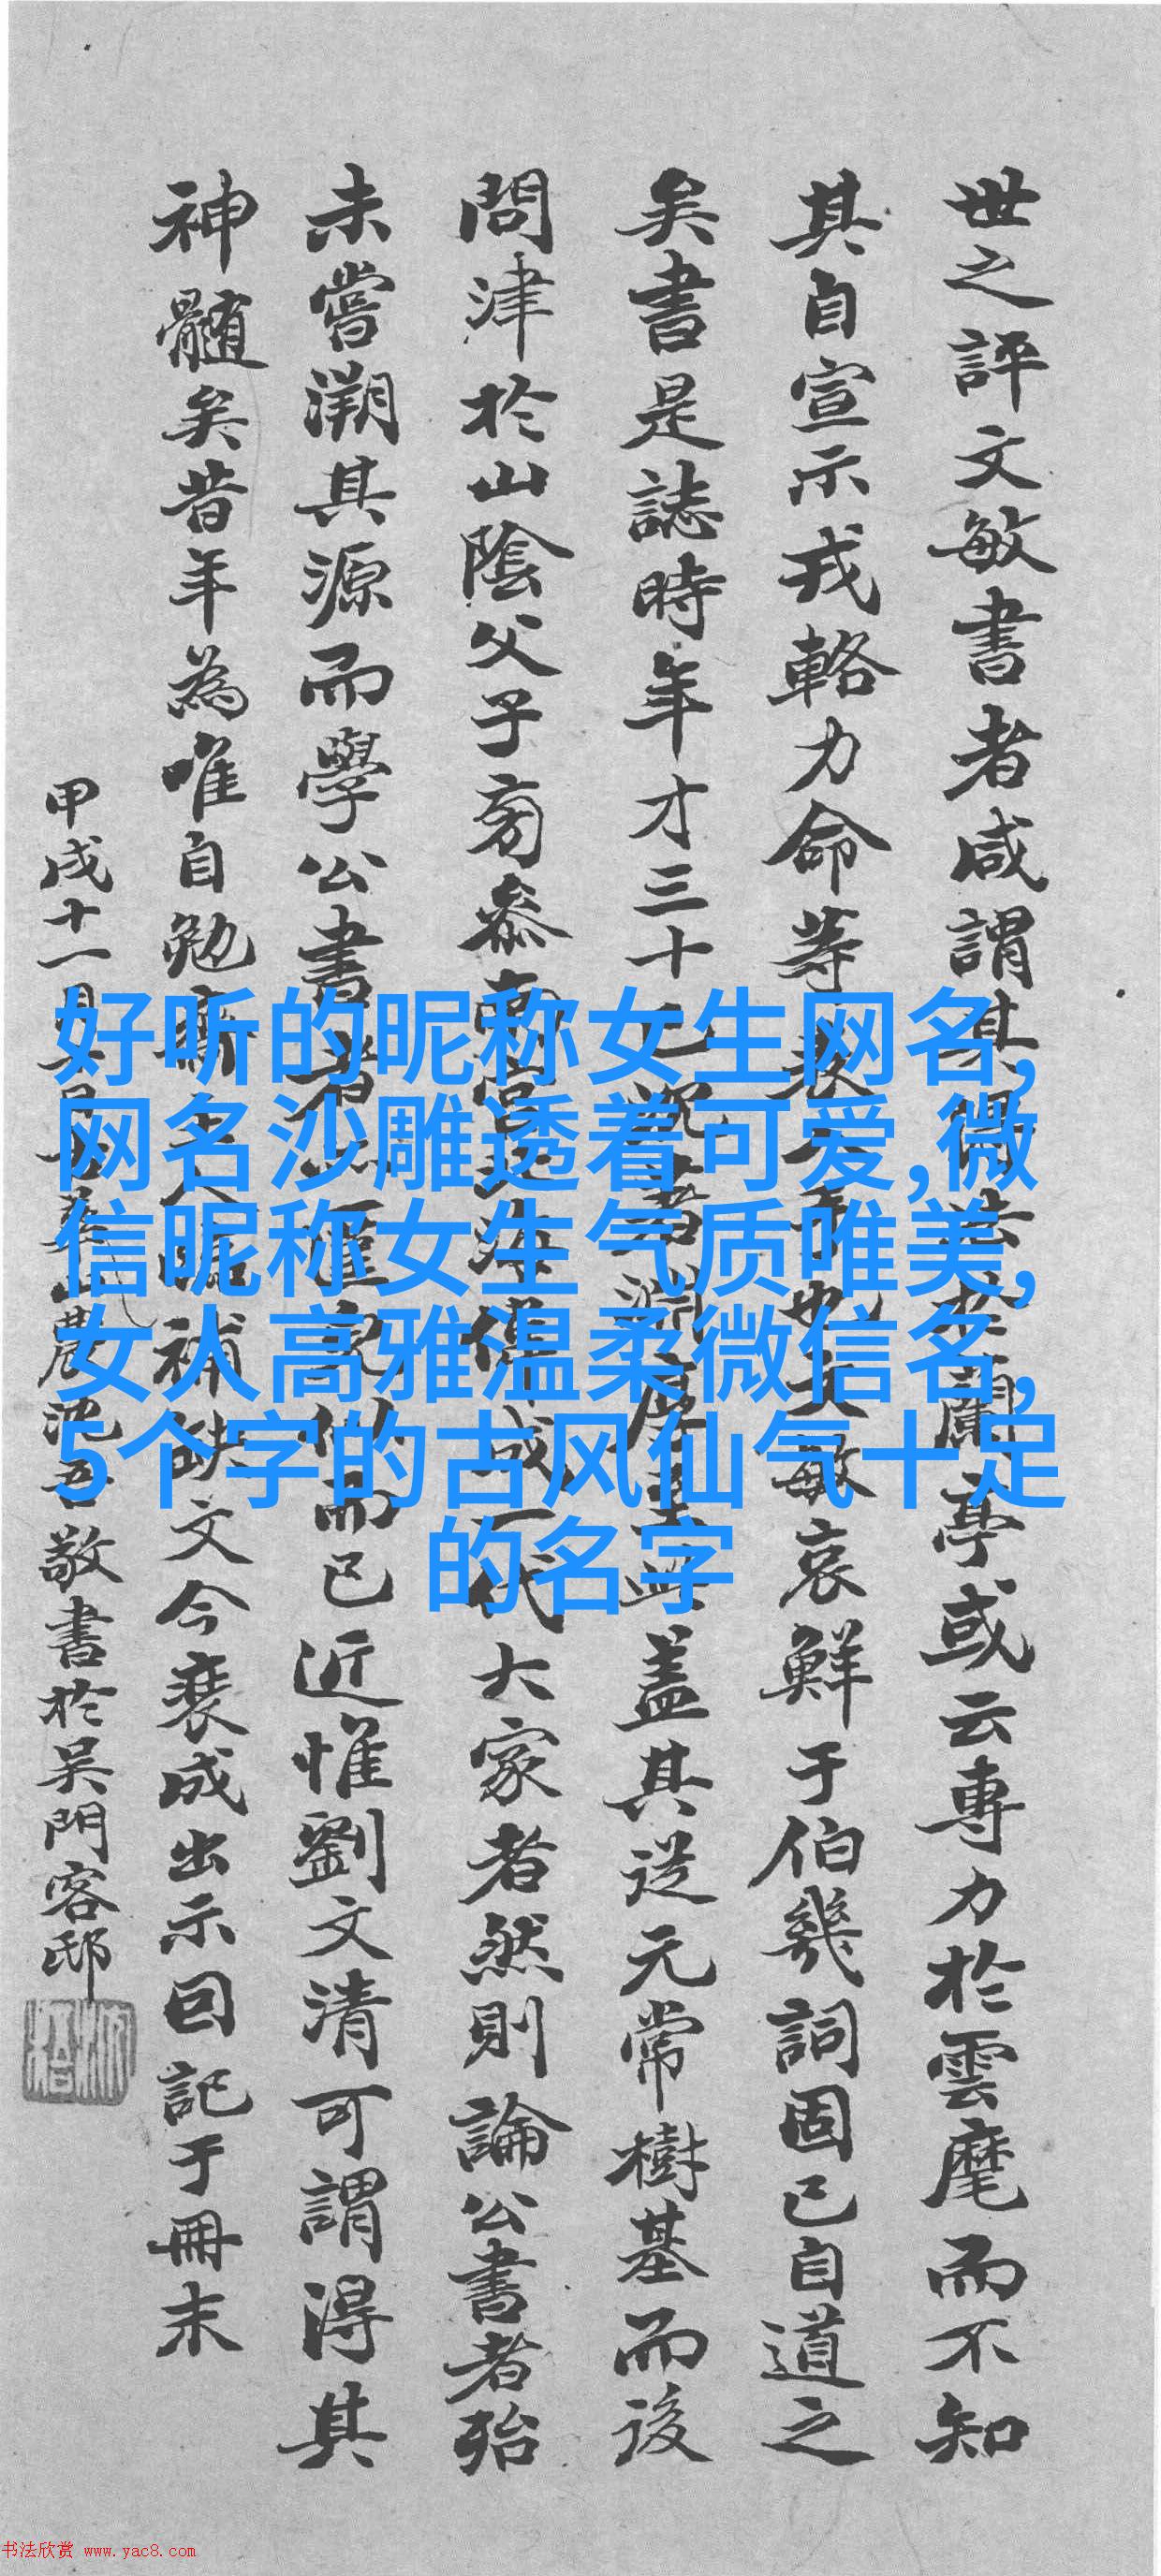 世之評文敏書者咸謂其得於蘭亭或云專力於雲麾而不知
其自宣示戎輅力命等表文敏哀鮮于伯幾詞固已自道之
矣書是誌時年才三十七盖其從元常樹基而後
問津於山陰父子旁參成一代大家者然則論公書者殆
未嘗溯其源而學公書者而已近惟劉文清可謂得其
神髓矣昔年為唯自勉齋主人補缺文今裝成出示回記于冊末
甲戌十一月農沈吾敬書於吴門客邸
好听的昵称女生网名,
网名沙雕透着可爱,微
信昵称女生气质唯美,
女人高雅温柔微信名,
5个字的古风仙气十足
的名字
书法欣赏 www.yac8.com